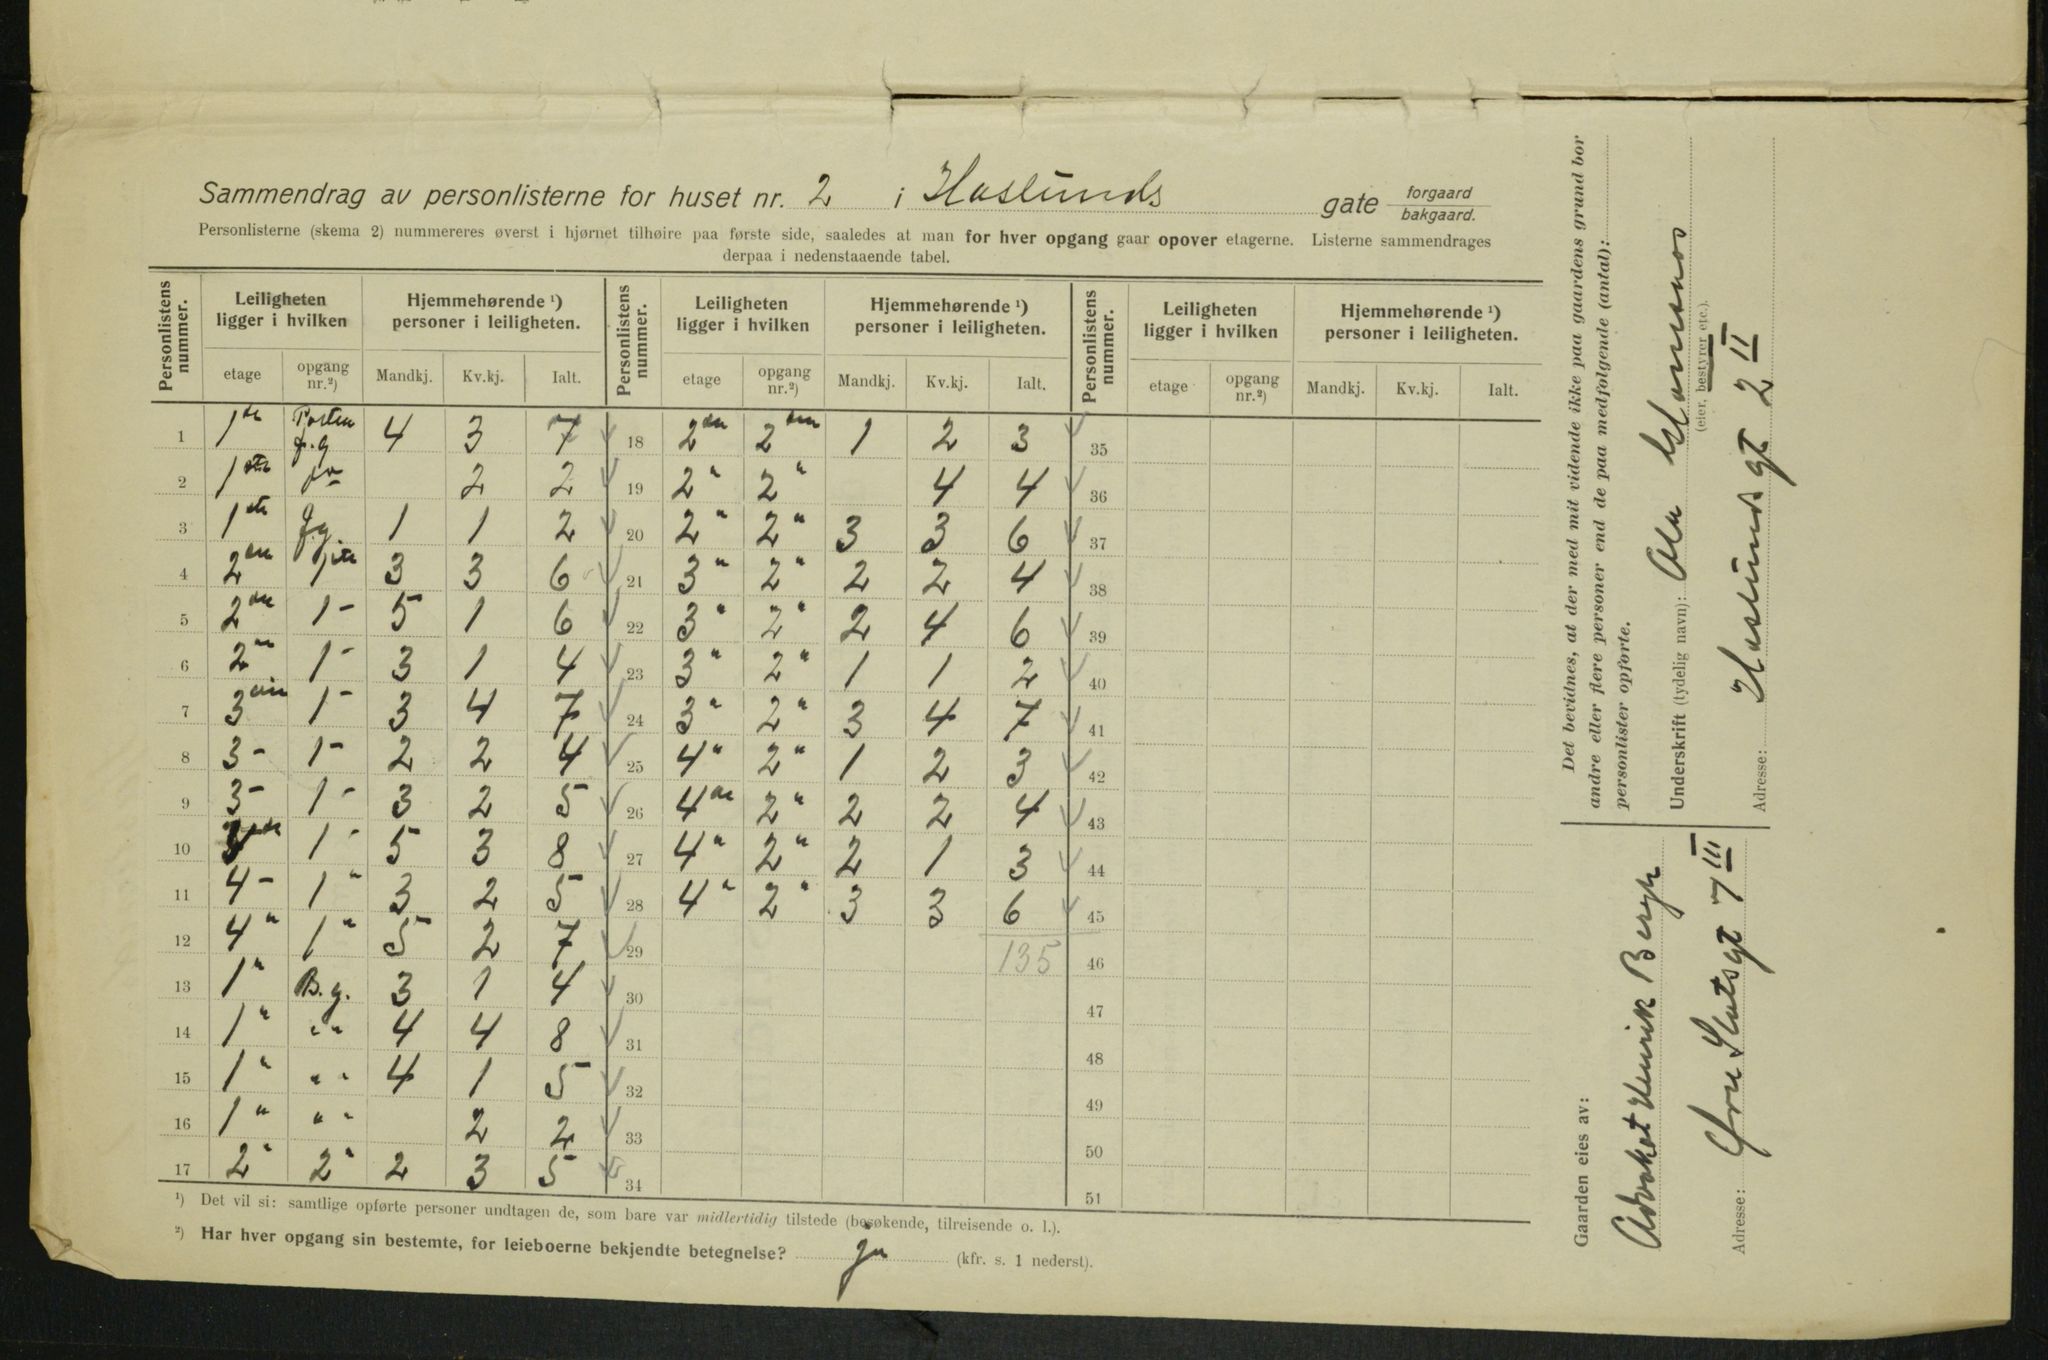 Sammendrag av personlisterne for huset nr. 2 i Haslunds gate forgaard bakgaard.
Personlisterne (skema 2) nummereres øverst i hjørnet tilhøire paa første side, saaledes at man for hver opgang gaar opover etagerne. Listerne sammendrages
derpaa i nedenstaaende tabel.
Personlistens nummer. Leiligheten ligger i hvilken Hjemmehørende ¹) personer i leiligheten. Personlistens nummer. Leiligheten ligger i hvilken Hjemmehørende ¹) personer i leiligheten. Personlistens nummer. Leiligheten ligger i hvilken Hjemmehørende ¹) personer i leiligheten.
etage opgang nr.²) Mandkj. Kv.kj. Ialt. etage opgang nr.²) Mandkj. Kv.kj. Ialt. etage opgang nr.²) Mandkj. Kv.kj. Ialt.
1 1ste Porten f.g 4 3 7 18 2den 2den 1 2 3 35
2 1ste 2 2 19 2" 2" 4 4 36
3 1ste f.g. 1 1 2 20 2" 2" 3 3 6 37
4 2den 1ste 3 3 6 21 3" 2" 2 2 4 38
5 2den 1- 5 1 6 22 3" 2" 2 4 6 39
6 2" 1- 3 1 4 23 3" 2" 1 1 2 40
7 3die 1- 3 4 7 24 3" 2" 3 4 7 41
8 3- 1- 2 2 4 25 4" 2" 1 2 3 42
9 3- 1- 3 2 5 26 4de 2" 2 2 4 43
10 4de 1- 5 3 8 27 4" 2" 2 1 3 44
11 4- 1" 3 2 5 28 4" 2" 3 3 6 45
12 4" 1" 5 2 7 29 135 46
13 1" B.g. 3 1 4 30 47
14 1" " " 4 4 8 31 48
15 1" " " 4 1 5 32 49
16 1" " " 2 2 33 50
17 2" 2" 2 3 5 34 51
¹) Det vil si: samtlige opførte personer undtagen de, som bare var midlertidig tilstede (besøkende, tilreisende o. l.).
²) Har hver opgang sin bestemte, for leieboerne bekjendte betegnelse? ja (kfr. s. 1 nederst).
Det bevidnes, at der med mit vidende ikke paa gaardens grund bor
andre eller flere personer end de paa medfølgende (antal):
personlister opførte.
Underskrift (tydelig navn): Ole
(eier, bestyrer etc.).
Adresse: Haslunds gt 2 II
Gaarden eies av:
Advokat Henrik Bergh
Adresse: Arne Slutsgt 7 III